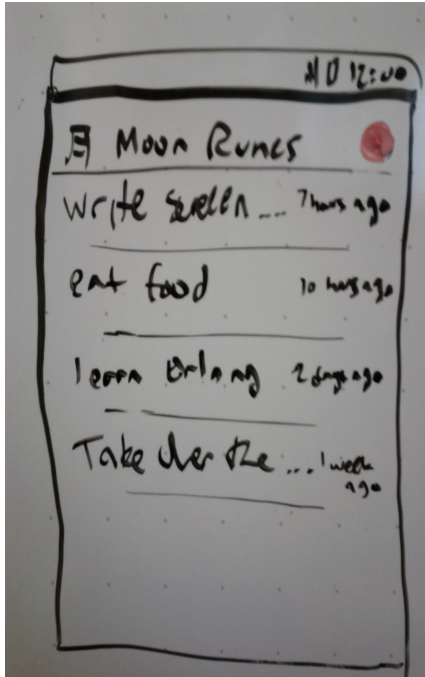 12:00
Moon Runes
write ... 7 hours ago
eat food 10 hours ago
learn Erlang 2 days ago
Take over the ... 1 week
ago